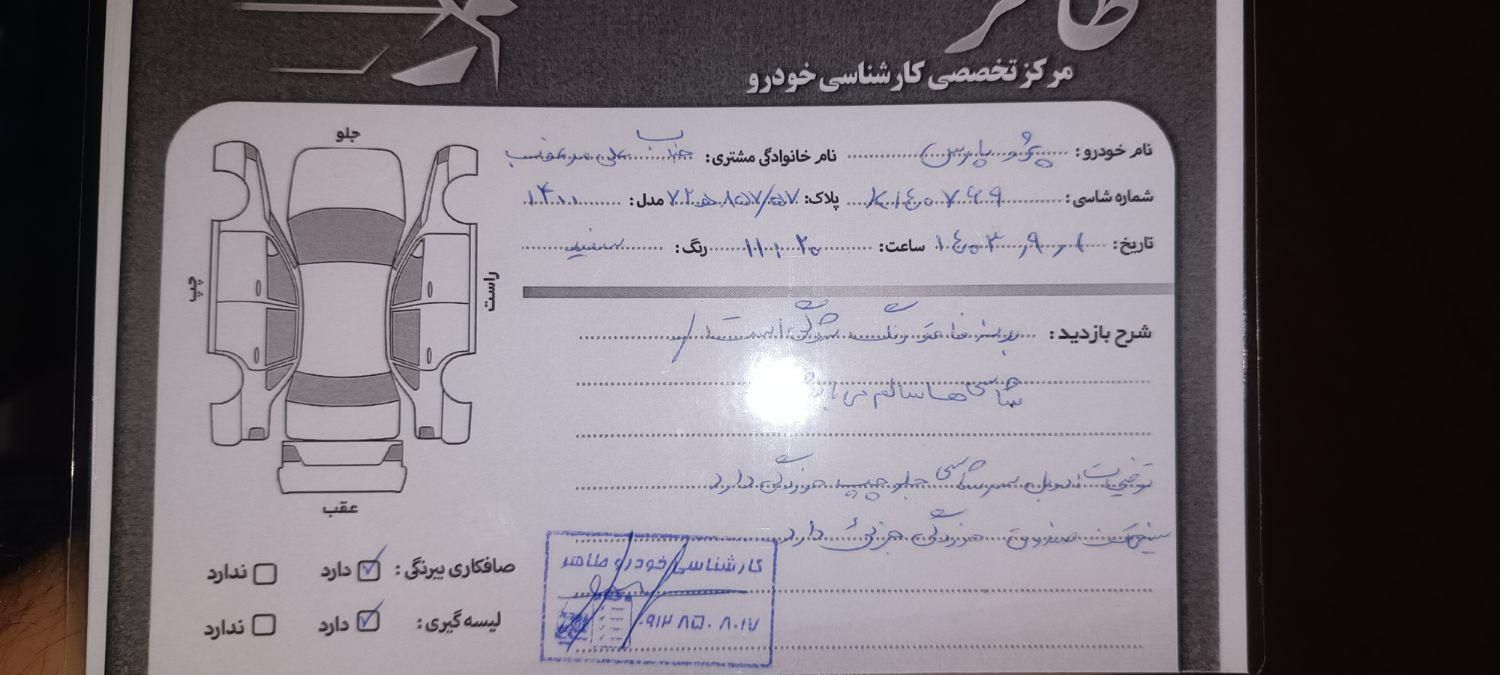 طاهر
مرکز تخصصی کارشناسی خودرو
نام خودرو: پژو پارس نام خانوادگی مشتری: جناب
شماره شاسی: K۱۴۰۷۶۹ پلاک: مدل: ۱۴۰۱
تاریخ: ۱۴۰۳,۹,۱ ساعت: ۱۱:۲۰ رنگ: سفید
شرح بازدید: بدنه فاقد رنگ شدگی است /
شاسی ها سالم می باشد
توضیحات: دوبل سرشاسی جلو چپ خوردگی دارد
سینی کف صندوق خوردگی جزئی دارد
جلو
چپ
راست
عقب
صافکاری بیرنگی: دارد ندارد
لیسه گیری: دارد ندارد
کارشناسی خودرو طاهر
۰۹۱۲ ۸۵۰ ۸۰۱۷